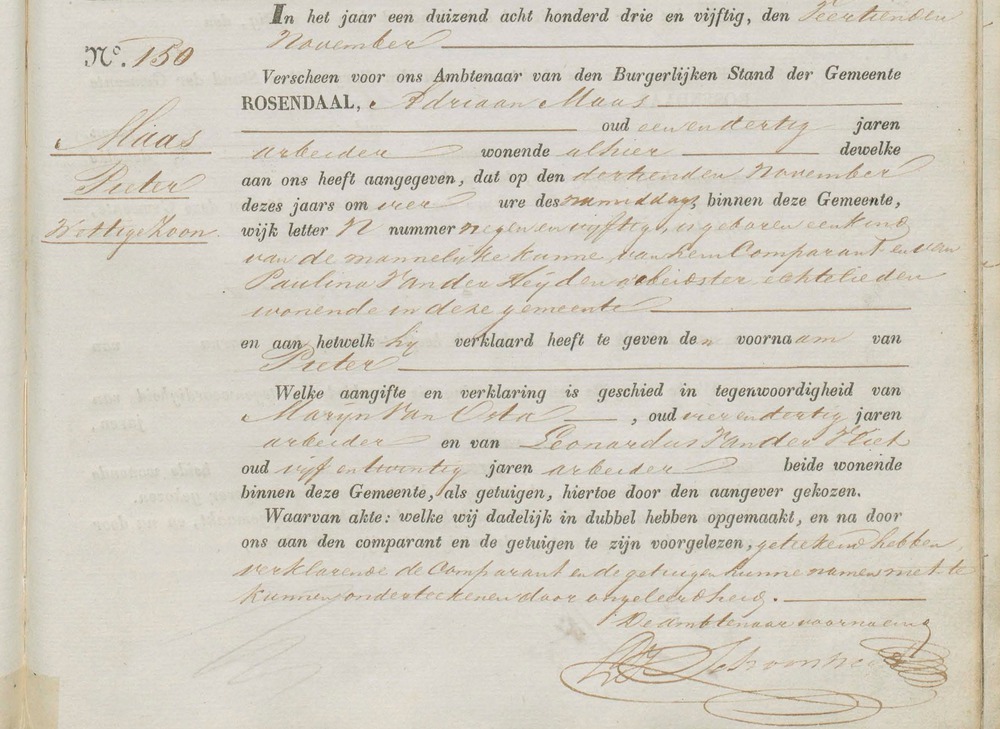 In het jaar een duizend acht honderd drie en vijftig, den Veertienden
November
No. 150
Verscheen voor ons Ambtenaar van den Burgerlijken Stand der Gemeente
ROSENDAAL, Adriaan Maas
oud een en dertig jaren
Maas
arbeider wonende alhier dewelke
Pieter
aan ons heeft aangegeven, dat op den dertienden November
dezes jaars om vier ure des namiddags, binnen deze Gemeente,
Wettige Zoon
wijk letter N nummer negen en vijftig, is geboren een kind
van de mannelijke kunne van hem Comparant en van
Paulina Van der Heyden arbeidster echtelieden
wonende in deze gemeente
en aan hetwelk hij verklaard heeft te geven den voornaam van
Pieter
Welke aangifte en verklaring is geschied in tegenwoordigheid van
Marijn Van Osta, oud vier en dertig jaren
arbeider en van Leonardus Van der Vliet
oud vijf en twintig jaren arbeider beide wonende
binnen deze Gemeente, als getuigen, hiertoe door den aangever gekozen.
Waarvan akte: welke wij dadelijk in dubbel hebben opgemaakt, en na door
ons aan den comparant en de getuigen te zijn voorgelezen, geteekend hebben,
verklarende de Comparant en de getuigen hunne namen niet te
kunnen onderteekenen door ongeleerdheid.
De Ambtenaar voornoemd